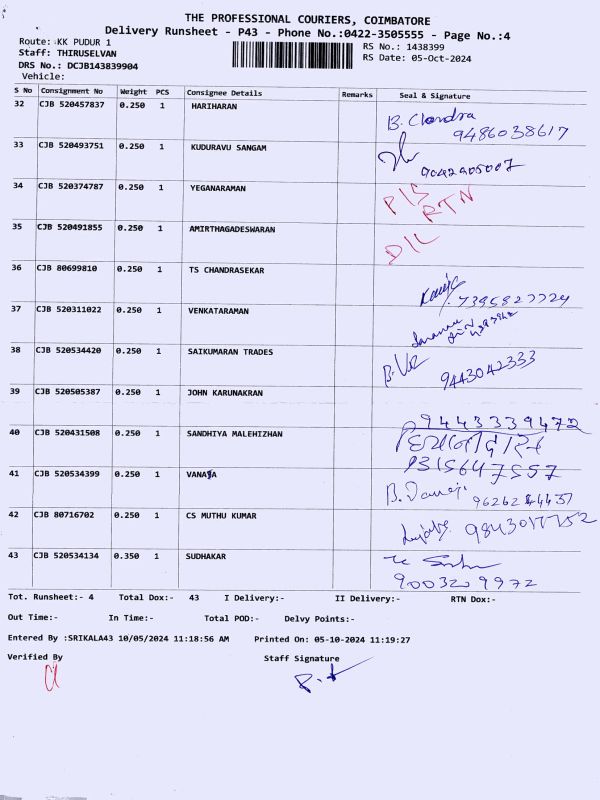 THE PROFESSIONAL COURIERS, COIMBATORE
Delivery Runsheet - P43 - Phone No.:0422-3505555 - Page No.:4
Route: KK PUDUR 1
RS No.: 1438399
Staff: THIRUSELVAN
RS Date: 05-Oct-2024
DRS No.: DCJB143839904
Vehicle:
S No Consignment No Weight PCS Consignee Details Remarks Seal & Signature
32 CJB 520457837 0.250 1 HARIHARAN B. Chandra
9486038617
33 CJB 520493751 0.250 1 KUDURAVU SANGAM
9042905007
34 CJB 520374787 0.250 1 YEGANARAMAN
RTN
35 CJB 520491855 0.250 1 AMIRTHAGADESWARAN D/L
36 CJB 80699810 0.250 1 TS CHANDRASEKAR
37 CJB 520311022 0.250 1 VENKATARAMAN
38 CJB 520534420 0.250 1 SAIKUMARAN TRADES
9443042333
39 CJB 520505387 0.250 1 JOHN KARUNAKRAN
9443339472
40 CJB 520431508 0.250 1 SANDHIYA MALEHIZHAN
41 CJB 520534399 0.250 1 VANAJA
42 CJB 80716702 0.250 1 CS MUTHU KUMAR
43 CJB 520534134 0.350 1 SUDHAKAR
9003209972
Tot. Runsheet:- 4 Total Dox:- 43 I Delivery:- II Delivery:- RTN Dox:-
Out Time:- In Time:- Total POD:- Delvy Points:-
Entered By :SRIKALA43 10/05/2024 11:18:56 AM Printed On: 05-10-2024 11:19:27
Verified By Staff Signature